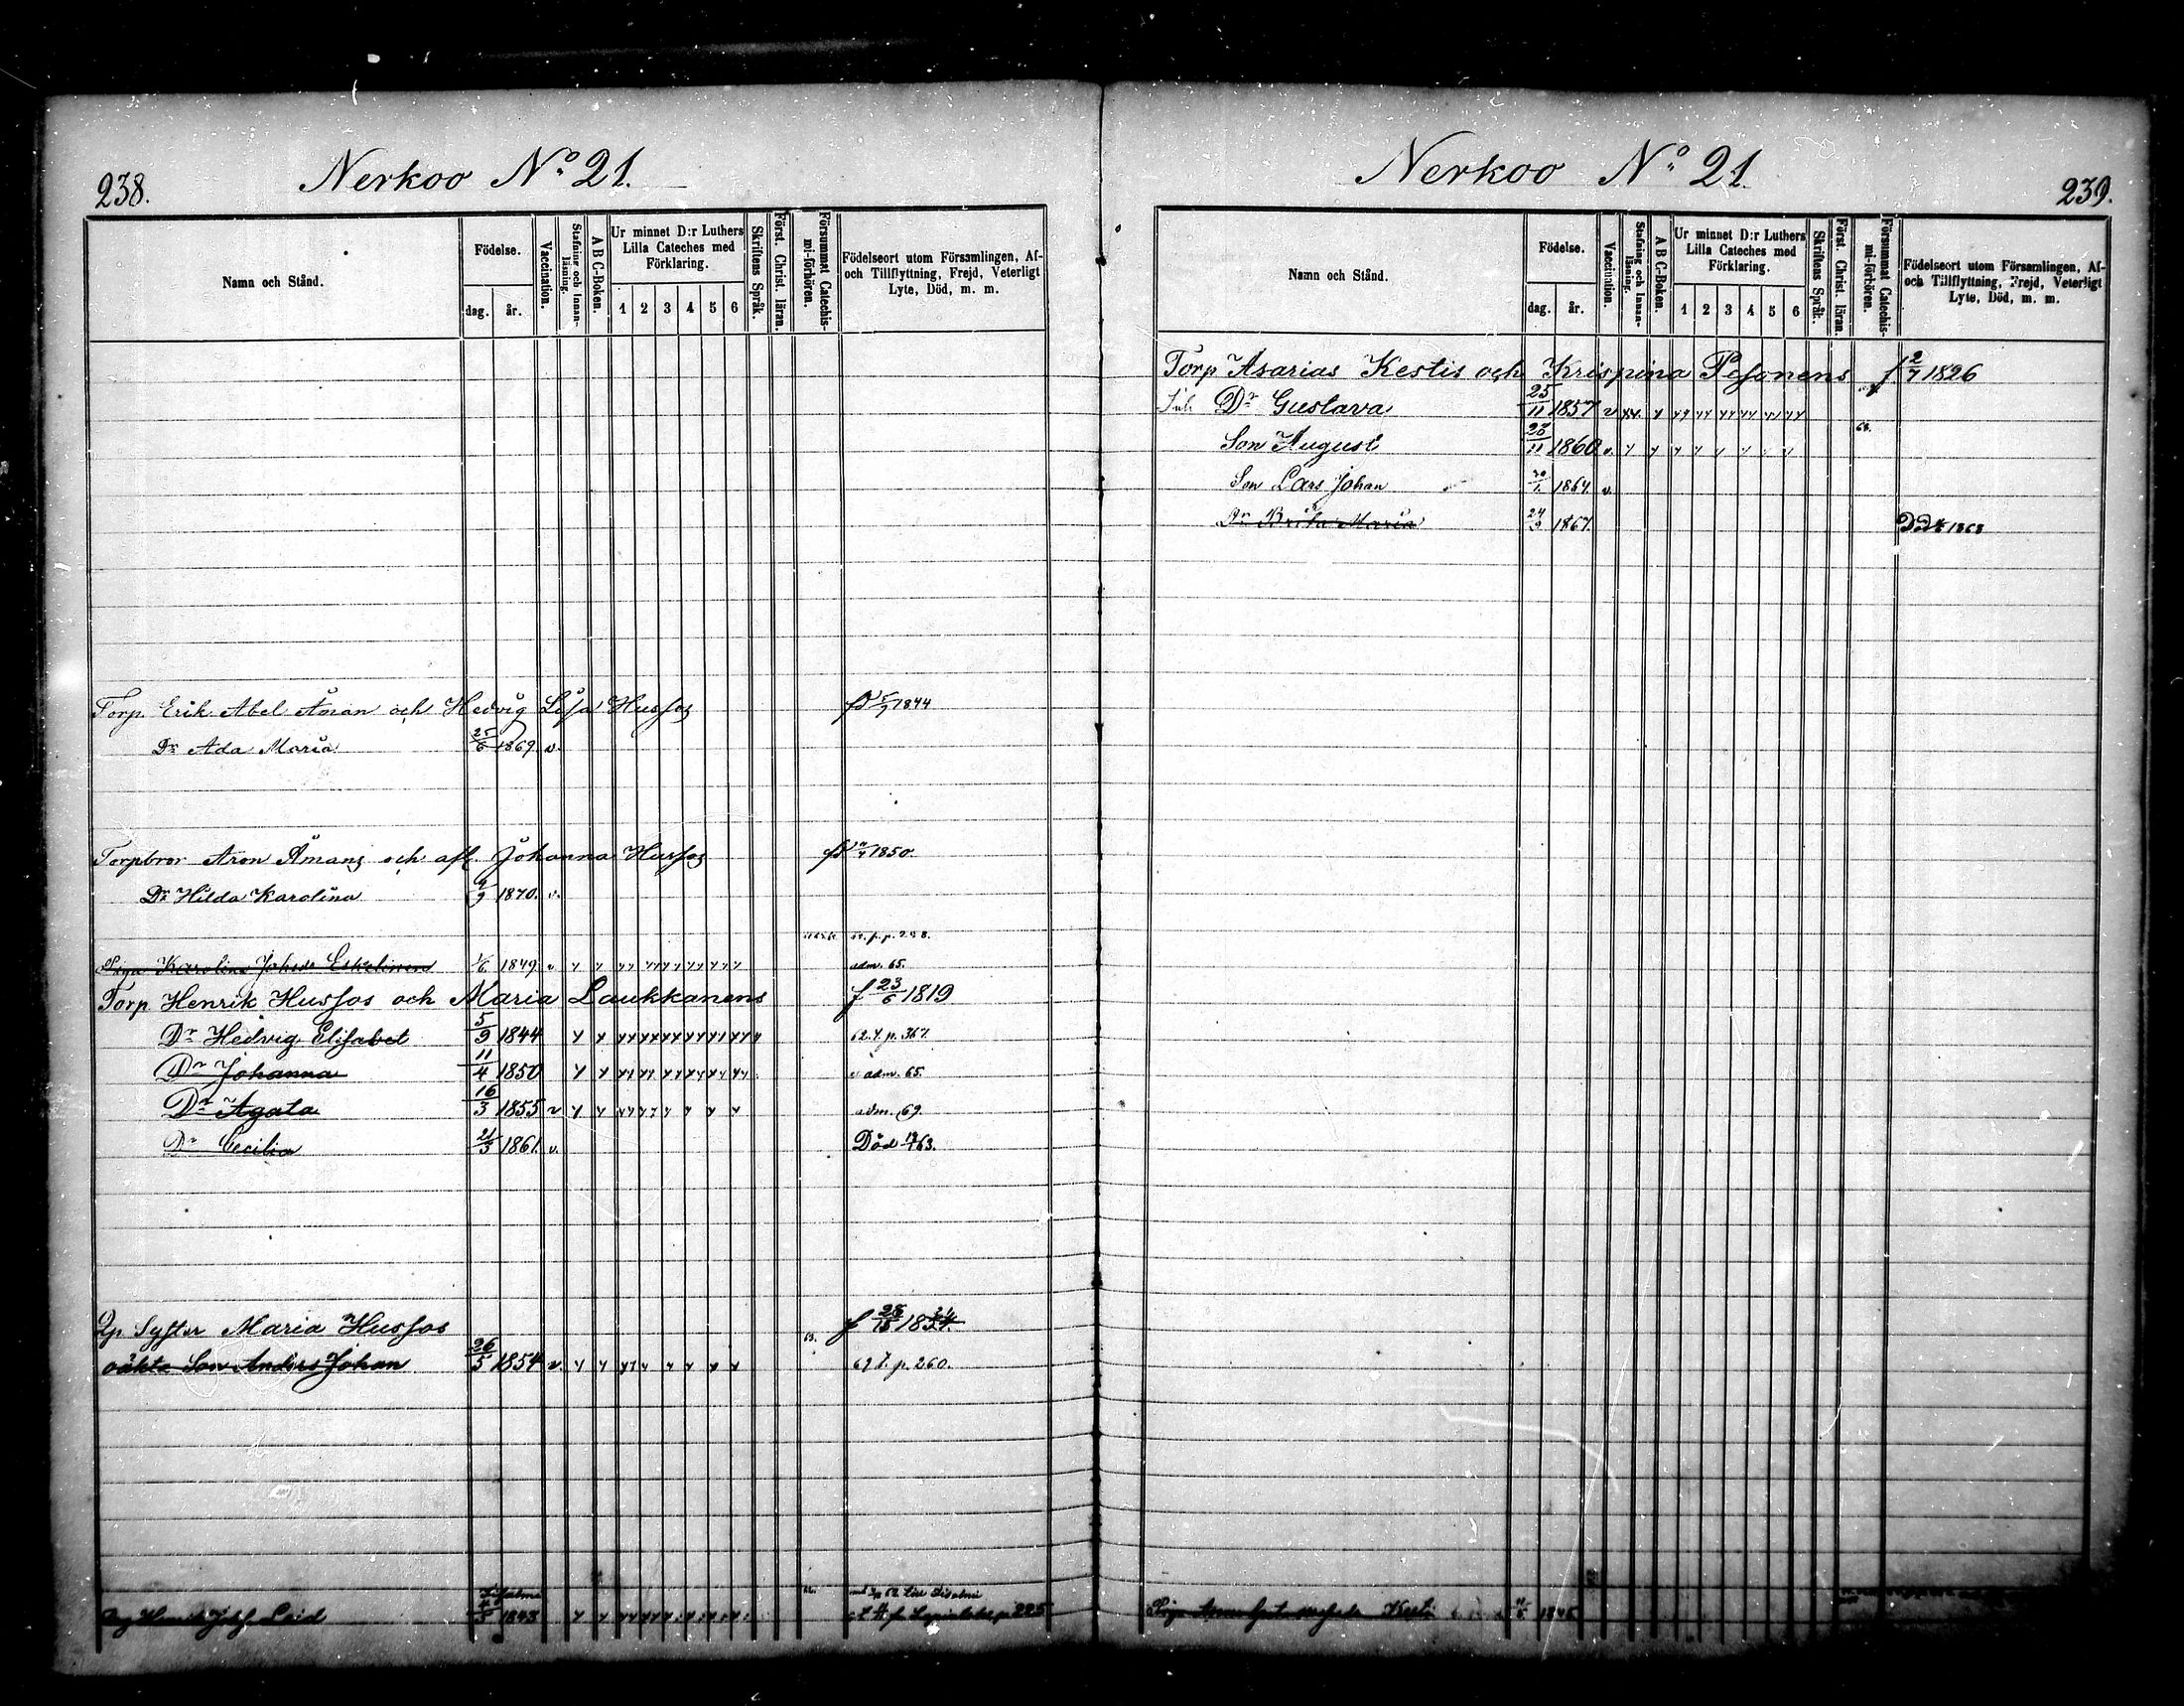 238.
Nerkoo No 21.
Namn och Stånd.
Födelse.
dag. år.
Vaccination.
Stafning och Innanläsning.
A B C-Boken.
Ur minnet D:r Luthers Lilla Cateches med Förklaring.
1 2 3 4 5 6
Skriftens Språk.
Först. Christ. läran.
Försummat Catechismi-förhören.
Födelseort utom Församlingen, Af- och Tillflyttning, Frejd, Veterligt Lyte, Död, m. m.
Torp. Erik Abel Åman och Hedvig Lisa Hussos 5/9 1844
Dr Ada Maria 25/6 1869. v.
Torpbror Aron Åmans och afl. Johanna Hussos 11/4 1850.
Dr Hilda Karolina 2/9 1870. v.
Piga Karolina Eskelinen 1/6 1849 v adm. 65.
Torp. Henrik Hussos och Maria Laukkanens f 23/6 1819
Dr Hedvig Elisabet 5/9 1844 62. t. p. 367.
Dr Johanna 11/4 1850 adm. 65.
Dr Agata 16/3 1855 v adm. 69.
Dr Cecilia 21/3 1861. v. Död 63.
Syster Maria Hussos
oäkta Son Anders Johan 26/5 1854 v. 63. 69 t. p. 260.
1843 p 225
239.
Nerkoo No 21.
Namn och Stånd.
Födelse.
dag. år.
Vaccination.
Stafning och Innanläsning.
A B C-Boken.
Ur minnet D:r Luthers Lilla Cateches med Förklaring.
1 2 3 4 5 6
Skriftens Språk.
Först. Christ. läran.
Försummat Catechismi-förhören.
Födelseort utom Församlingen, Af- och Tillflyttning, Frejd, Veterligt Lyte, Död, m. m.
Torp Asarias Kestis och Krispina Pesonens f 2/7 1826
Dr Gustava 25/11 1857 v
Son August 1860 v. 68.
Son Lars Johan 1864. v.
Dr Brita Maria 24/9 1867. 1868
Piga Anna Kesti 1845